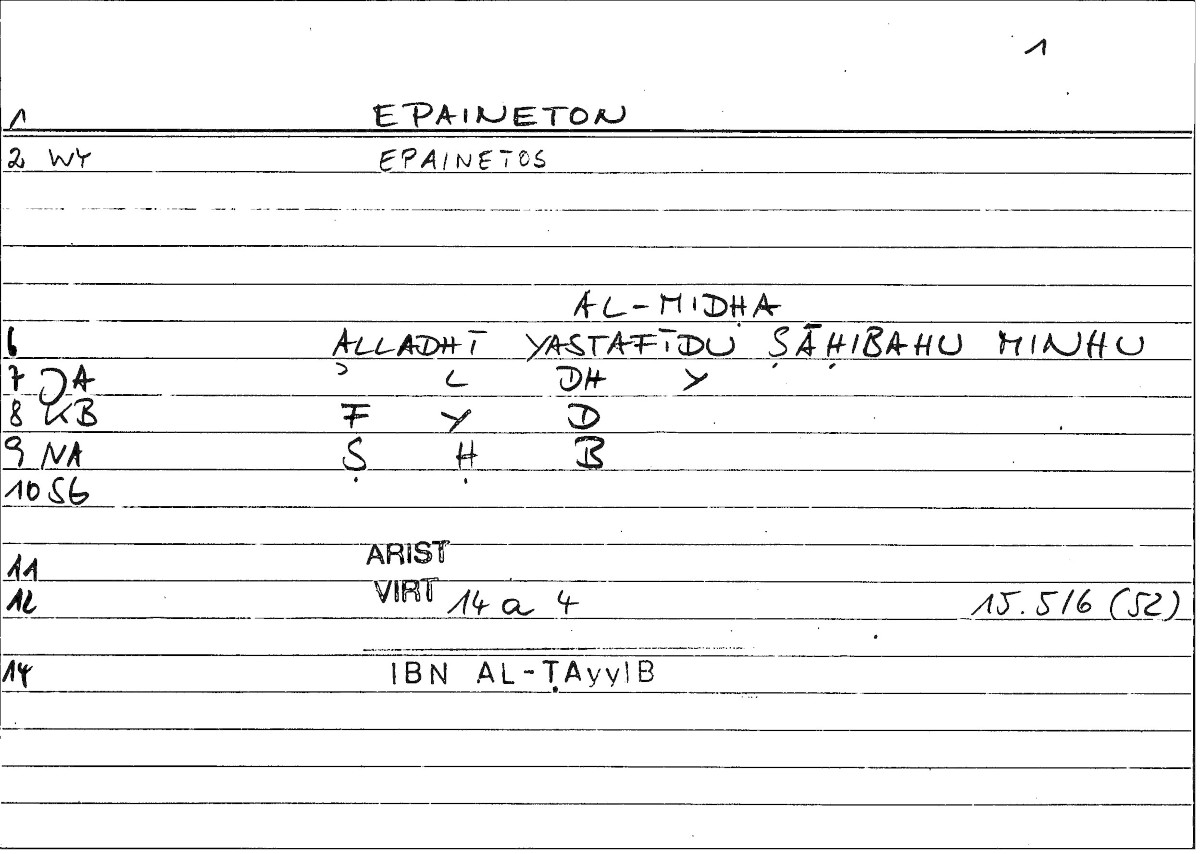 1
1 EPAINETON
2 WY EPAINETOS
AL-MIDḤA
6 ALLADHĪ YASTAFĪDU ṢĀḤIBAHU MINHU
7 DA ʾ L DH Y
8 KB F Y D
9 NA Ṣ Ḥ B
10 SG
11 ARIST
12 VIRT 14 a 4 15.5/6 (52)
14 IBN AL-ṬAyyIB